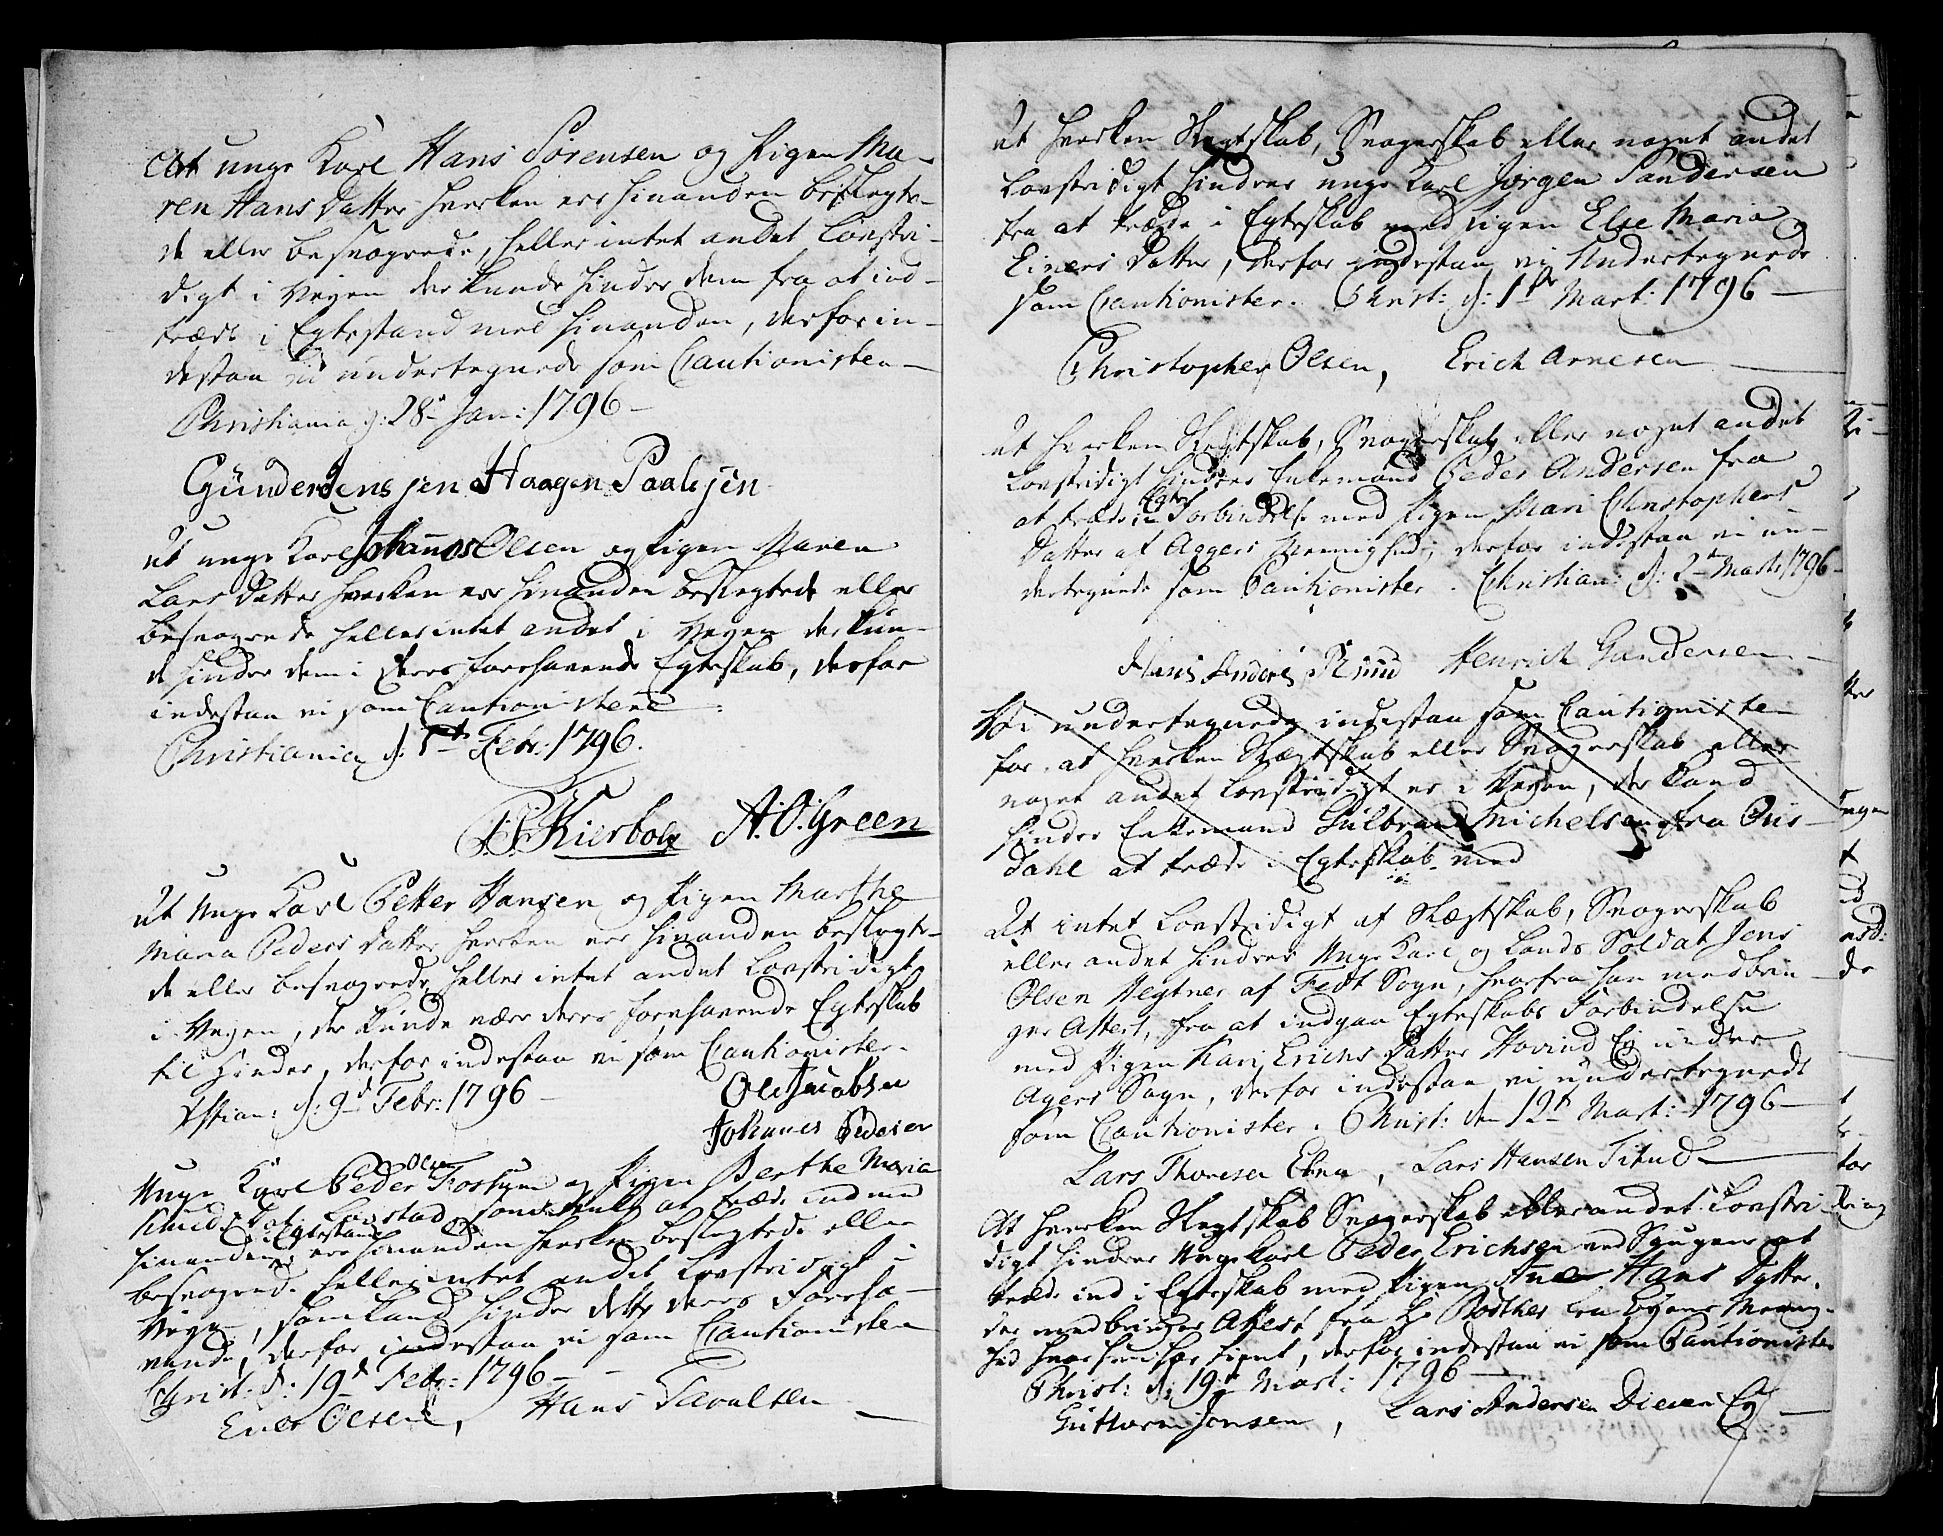 At unge Karl Hans Sörensen og Pigen Ma-
ren Hans Datter hverken ere hinanden beslegte-
de eller besvogrede, heller intet andet Lovstri-
digt i Vejen der kunde hindre dem fra at ind-
træde i Egtestand med hinanden, derfor in-
destaa vi undertegnede som Cautionister
Christiania d: 28 Jan: 1796
Günder Jensjen Haagen Paalsjen
At unge Karl Johannes Olsen og Pigen Maren
Lars Datter hverken ere hinanden beslegtede eller
besvogrede heller intet andet i Vejen der kun-
de hindre dem i deres forehavende Egteskab, derfor
indestaa vi som Cautionistere
Christiania d. 1te Febr: 1796.
Kierbolg A. O. Green
At Unge Karl Petter Hansen og Pigen Marthe
Maria Peders Datter hverken ere hinanden beslegte-
de eller besvogrede heller intet andet Lovstridigt
i Vejen, der kunde være deres forehavende Egteskab
til Hinder, derfor indestaa vi som Cautionister.
Xstian: d: 9d Febr: 1796
Ole Jacobsen
Johannes Pedersen
Unge Karl Peder Olsen Fossum og Pigen Berthe Maria
Knuds Dat. som vill at træde ind med
hinanden i Egtestand ere hinanden hverken beslegtede eller
besvogrede heller intet andet Lovstridigt i
Vejen, som kand hindre dette deres Foreha-
vende, derfor indestaa vi som Cautionister
Christ: d: 19d Febr: 1796
Ener Olsen, Hans Paoulsen
At hverken Slegtskab, Svogerskab eller noget andet
Lovstridigt hindrer unge Karl Jørgen Sandersen
fra at træde i Egteskab med Pigen Else Maria
Einers Datter, derfor indestaa vi Undertegnede
som Cautionister. Christ: d: 1te Mart: 1796
Christopher Olsen, Erich Arnesen
At hverken Slegtskab, Svogerskab eller noget andet
Lovstridigt hindrer Enkemand Peder Andersen fra
at træde i Egte Forbindelse med Pigen Mari Christophers
Datter af Aggers Menighed, derfor indestaa vi un-
dertegnede som Cautionister. Christian: d: 2 Marts 1796
Hans Anders Ruud Henrich Gundersen
Vi undertegnede indestaa som Cautionister
for, at hverken Slegtskab eller Svogerskab eller
noget andet Lovstridigt er i Vejen, der kand
hindre Enkemand Gulbrand Michelsen fra
Dahl at træde i Egteskab med
At intet Lovstridigt af Slegtskab, Svogerskab
eller andet hindrer Unge Karl og Lands Soldat Jens
Olsen Hegtner af Fedt Sogn, hvorfra han medbrin-
ger Attest, fra at indgaa Egteskabs Forbindelse
med Pigen Kari Erichs Datter Hovind Ej under
Agers Sogn, derfor indestaa vi undertegnede
som Cautionister. Christ: den 12te Mart: 1796
Lars Thoresen Ebna, Lars Hansen
At hverken Slegtskab Svogerskab eller andet Lovstri-
digt hindrer Unge Karl Peder Erichsen ved Saugene at
træde ind i Egteskab med Pigen Ane Hans Datter.
der medbringer Attest fra Hr Borthes fra Byens Menig-
hed hvor hun har tient, derfor indestaa vi som Cautionister
Christ: d: 19de Mart: 1796
Guttorm Jonsen, Lars Andersen Ej